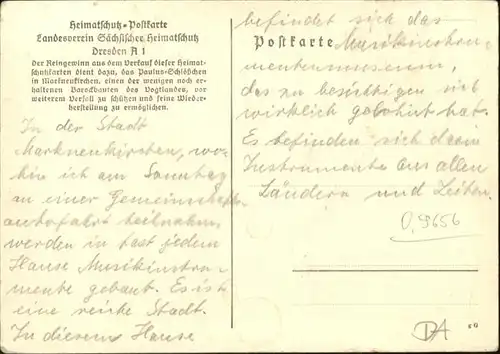 Heimatschutz-Postkarte
Landesverein Sächsischer Heimatschutz
Dresden A 1
Der Reingewinn aus dem Verkauf dieser Heimat-
schutzkarten dient dazu, das Paulus-Schlößchen
in Markneukirchen, einen der wenigen noch er-
haltenen Barockbauten des Vogtlandes, vor
weiterem Verfall zu schützen und seine Wieder-
herstellung zu ermöglichen.
In der Stadt
Markneukirchen, wo-
hin ich am Sonntag
an einer Gemeinschafts-
autofahrt teilnahm,
werden in fast jedem
Hause Musikinstru-
mente gebaut. Es ist
eine reiche Stadt.
In diesem Hause
befindet sich das
Postkarte
Musikinstru-
mentenmuseum,
das zu besichtigen sich
wirklich gelohnt hat.
Es befinden sich darin
Instrumente aus allen
Ländern und Zeiten.
0,9656
DA